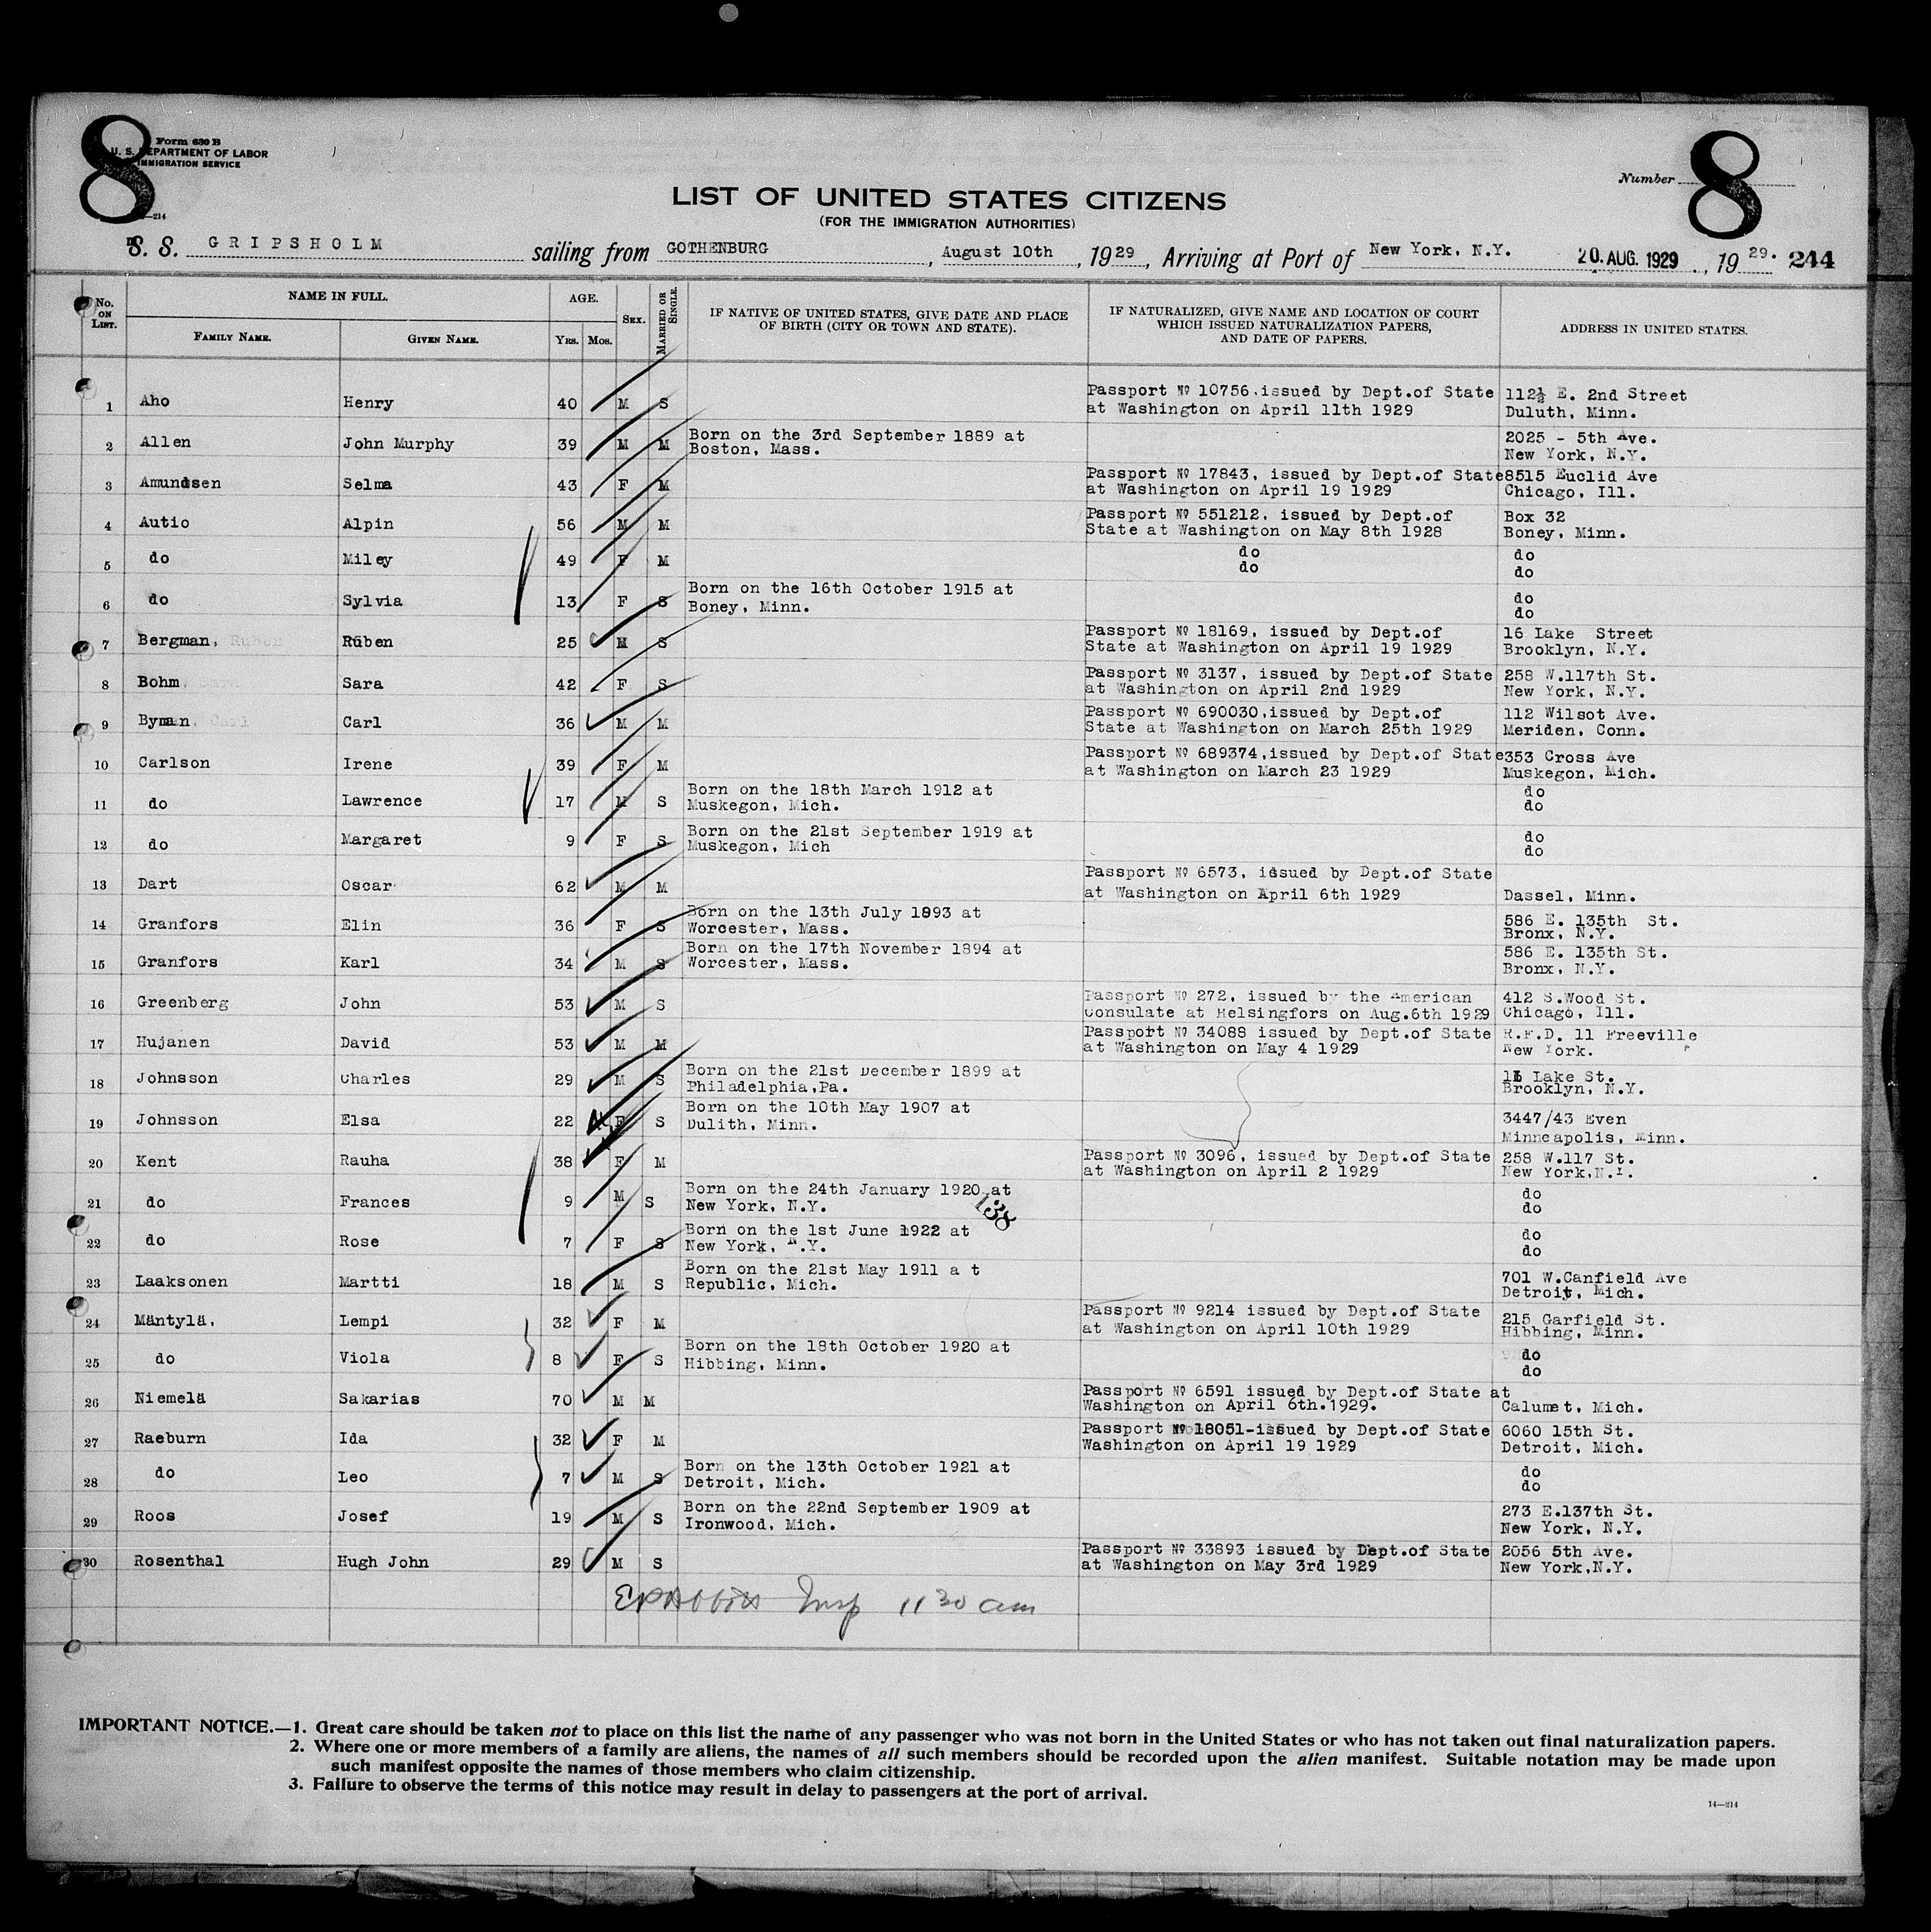 8
Form 630 B
U. S. DEPARTMENT OF LABOR
IMMIGRATION SERVICE
—214
Number
8
LIST OF UNITED STATES CITIZENS
(FOR THE IMMIGRATION AUTHORITIES)
S. S. GRIPSHOLM sailing from GOTHENBURG, August 10th, 1929, Arriving at Port of New York, N.Y. 20. AUG. 1929, 1929. 244
No. ON LIST.
NAME IN FULL.
FAMILY NAME.
GIVEN NAME.
AGE.
YRS. MOS.
SEX.
MARRIED OR SINGLE.
IF NATIVE OF UNITED STATES, GIVE DATE AND PLACE
OF BIRTH (CITY OR TOWN AND STATE).
IF NATURALIZED, GIVE NAME AND LOCATION OF COURT
WHICH ISSUED NATURALIZATION PAPERS,
AND DATE OF PAPERS.
ADDRESS IN UNITED STATES.
1 Aho Henry 40 M S Passport № 10756, issued by Dept.of State 112½ E. 2nd Street
at Washington on April 11th 1929 Duluth, Minn.
2 Allen John Murphy 39 M M Born on the 3rd September 1889 at 2025 - 5th Ave.
Boston, Mass. New York, N.Y.
3 Amundsen Selma 43 F M Passport № 17843, issued by Dept.of State 8515 Euclid Ave
at Washington on April 19 1929 Chicago, Ill.
4 Autio Alpin 56 M M Passport № 551212, issued by Dept.of Box 32
State at Washington on May 8th 1928 Boney, Minn.
5 do Miley 49 F M do do
do do
6 do Sylvia 13 F S Born on the 16th October 1915 at do
Boney, Minn. do
7 Bergman, Ruben Ruben 25 M S Passport № 18169, issued by Dept.of 16 Lake Street
State at Washington on April 19 1929 Brooklyn, N.Y.
8 Bohm, Sara 42 F S Passport № 3137, issued by Dept.of State 258 W.117th St.
at Washington on April 2nd 1929 New York, N.Y.
9 Byman, Carl Carl 36 M M Passport № 690030,issued by Dept.of 112 Wilsot Ave.
State at Washington on March 25th 1929 Meriden, Conn.
10 Carlson Irene 39 F M Passport № 689374,issued by Dept.of State 353 Cross Ave
at Washington on March 23 1929 Muskegon, Mich.
11 do Lawrence 17 M S Born on the 18th March 1912 at do
Muskegon, Mich. do
12 do Margaret 9 F S Born on the 21st September 1919 at do
Muskegon, Mich do
13 Dart Oscar 62 M M Passport № 6573, issued by Dept.of State
at Washington on April 6th 1929 Dassel, Minn.
14 Granfors Elin 36 F S Born on the 13th July 1893 at 586 E. 135th St.
Worcester, Mass. Bronx, N.Y.
15 Granfors Karl 34 M S Born on the 17th November 1894 at 586 E. 135th St.
Worcester, Mass. Bronx, N.Y.
16 Greenberg John 53 M S Passport № 272, issued by the American 412 S.Wood St.
Consulate at Helsingfors on Aug.6th 1929 Chicago, Ill.
17 Hujanen David 53 M M Passport № 34088 issued by Dept.of State R.F.D. 11 Freeville
at Washington on May 4 1929 New York.
18 Johnsson Charles 29 M S Born on the 21st December 1899 at 16 Lake St.
Philadelphia,Pa. Brooklyn, N.Y.
19 Johnsson Elsa 22 F S Born on the 10th May 1907 at 3447/43 Even
Dulith, Minn. Minneapolis, Minn.
20 Kent Rauha 38 F M Passport № 3096, issued by Dept.of State 258 W.117 St.
at Washington on April 2 1929 New York,N.Y.
21 do Frances 9 M S Born on the 24th January 1920 at do
New York, N.Y. 138 do
22 do Rose 7 F S Born on the 1st June 1922 at do
New York, N.Y. do
23 Laaksonen Martti 18 M S Born on the 21st May 1911 a t 701 W.Canfield Ave
Republic, Mich. Detroit, Mich.
24 Mäntylä, Lempi 32 F M Passport № 9214 issued by Dept.of State 215 Garfield St.
at Washington on April 10th 1929 Hibbing, Minn.
25 do Viola 8 F S Born on the 18th October 1920 at do
Hibbing, Minn. do
26 Niemelä Sakarias 70 M M Passport № 6591 issued by Dept.of State at
Washington on April 6th.1929. Calumet, Mich.
27 Raeburn Ida 32 F M Passport № 18051-issued by Dept.of State 6060 15th St.
Washington on April 19 1929 Detroit, Mich.
28 do Leo 7 M S Born on the 13th October 1921 at do
Detroit, Mich. do
29 Roos Josef 19 M S Born on the 22nd September 1909 at 273 E.137th St.
Ironwood, Mich. New York, N.Y.
30 Rosenthal Hugh John 29 M S Passport № 33893 issued by Dept.of State 2056 5th Ave.
at Washington on May 3rd 1929 New York,N.Y.
Insp 11 30 am
IMPORTANT NOTICE.—1. Great care should be taken not to place on this list the name of any passenger who was not born in the United States or who has not taken out final naturalization papers.
2. Where one or more members of a family are aliens, the names of all such members should be recorded upon the alien manifest. Suitable notation may be made upon
such manifest opposite the names of those members who claim citizenship.
3. Failure to observe the terms of this notice may result in delay to passengers at the port of arrival.
14—214